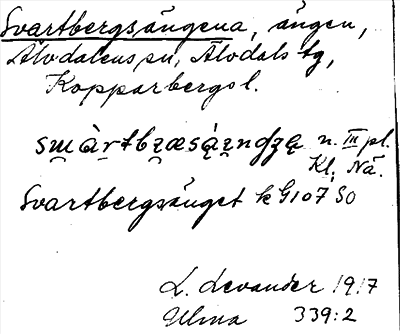 Svartbergsängena, ängen,
Älvdalens sn, Älvdals tg,
Kopparbergs l.
n. III pl.
Kl. Nä.
Svartbergsänget k G107 SO
L. Levander 1917
Ulma 339:2